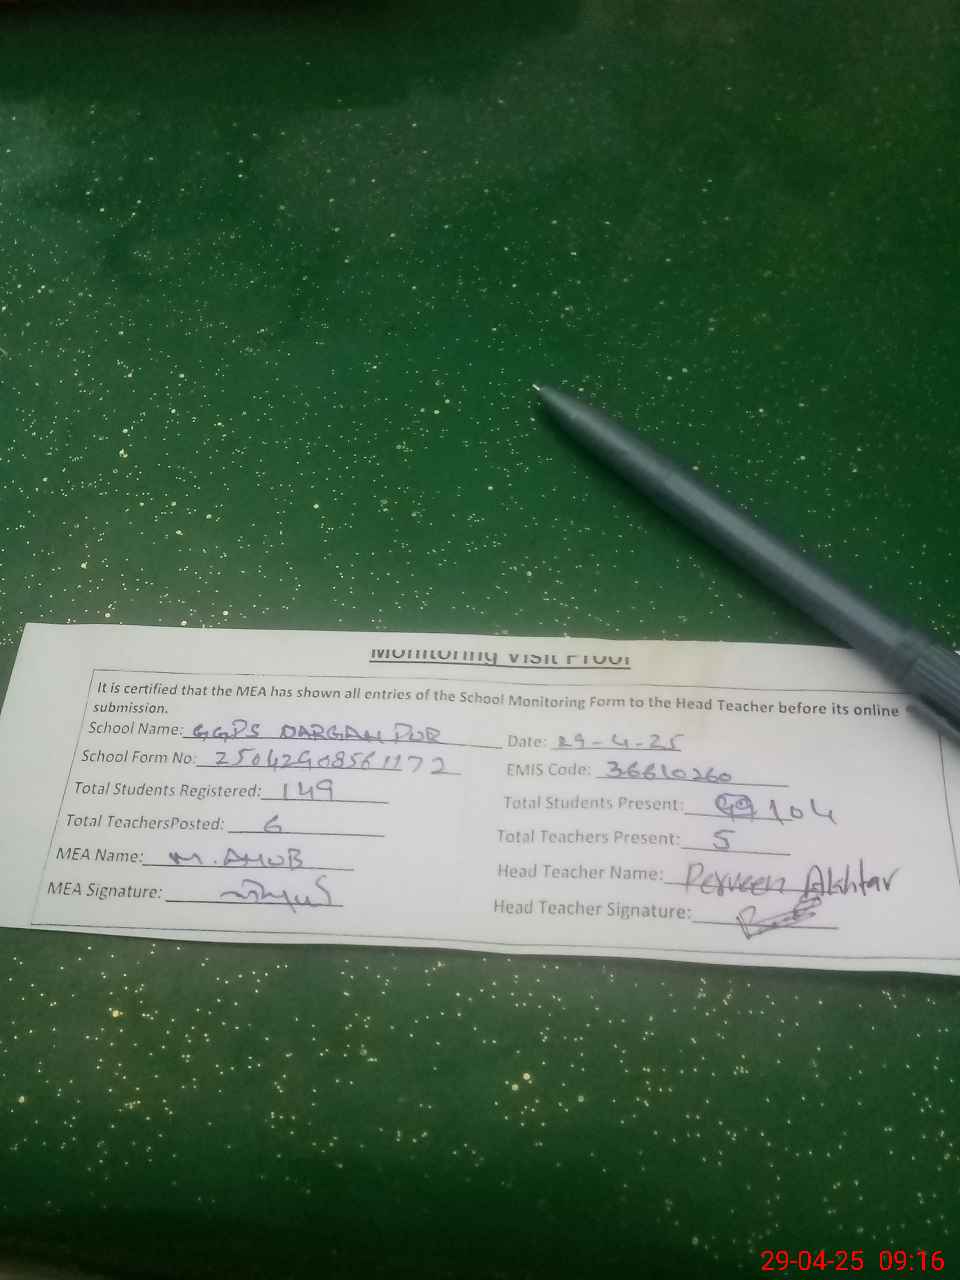 Monitoring Visit Proof
It is certified that the MEA has shown all entries of the School Monitoring Form to the Head Teacher before its online
submission.
School Name: GGPS DARGAH PUR Date: 29-4-25
School Form No: 25042908561172 EMIS Code: 36610260
Total Students Registered: 149 Total Students Present: 104
Total TeachersPosted: 6 Total Teachers Present: 5
MEA Name: M. Head Teacher Name: Perveen Akhtar
MEA Signature: Head Teacher Signature:
29-04-25 09:16